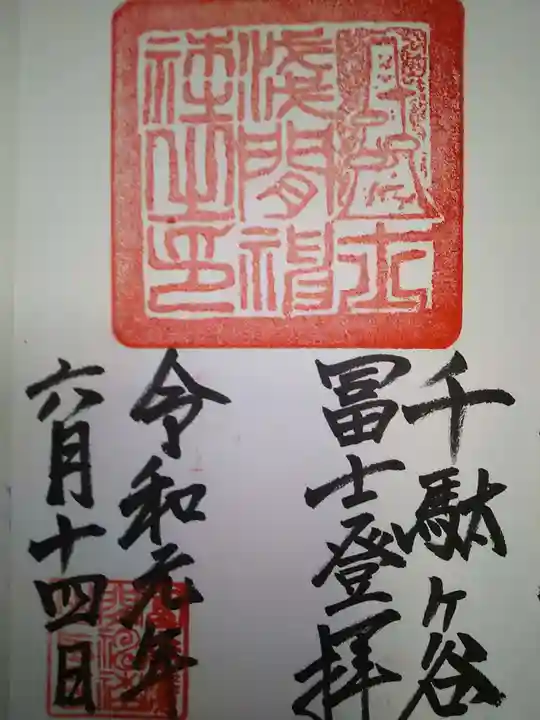 富士
浅間神
社之印
千駄ヶ谷
冨士登拝
令和元年
六月十四日